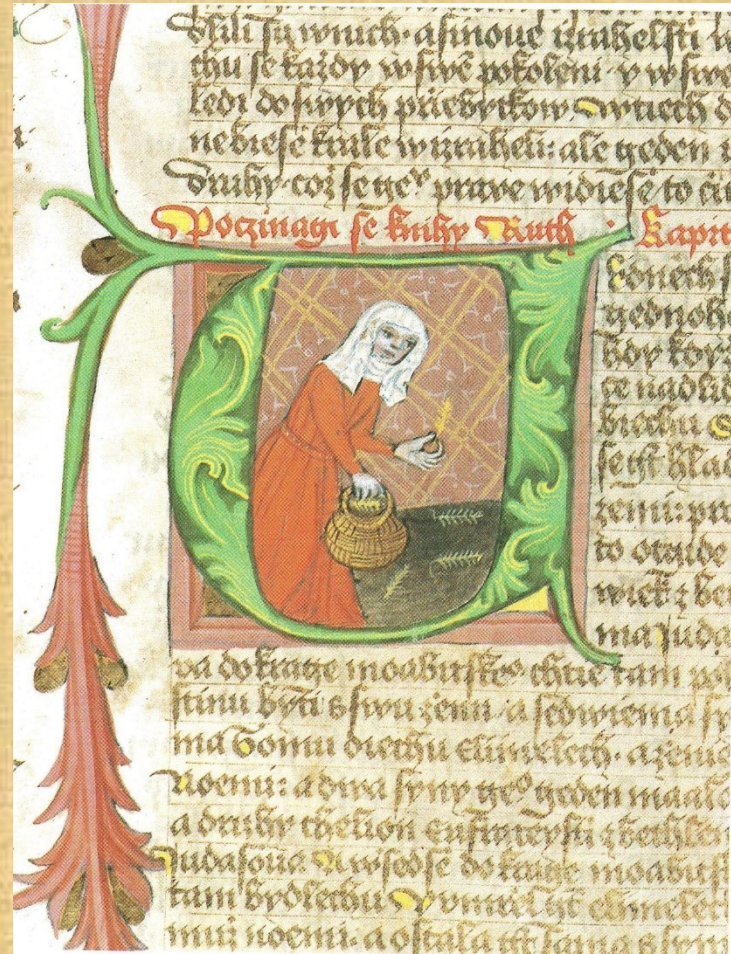 byli su w nich · a sinoue izrahelsti w
chu se kazdy w swe pokoleni · y w swe
ledi do swych prziebytkow · w tiech d
nebiese krale w izraheli: ale geden
druhy · coz se geo prawe widiese to czi
Poczinagi se knihy Ruth · Kapit
dnech
gednoh
kdy
biechu
hlad
zemi: pro
to otgide
wiek z be
ma Juda
va do krage moabitskeo chtie tam po
stinu byti s swu zenu · a se dwiema sy
ma Tomu diechu Elimelech · a zenie
Noemi: a dwa syny geo geden maalo
a druhy chelion z bethlem
Juda · A wsedse do krage moabits
tam bydlechu · Y umrzel gt elimelech
muz noemi · a ostala gt sama s syny